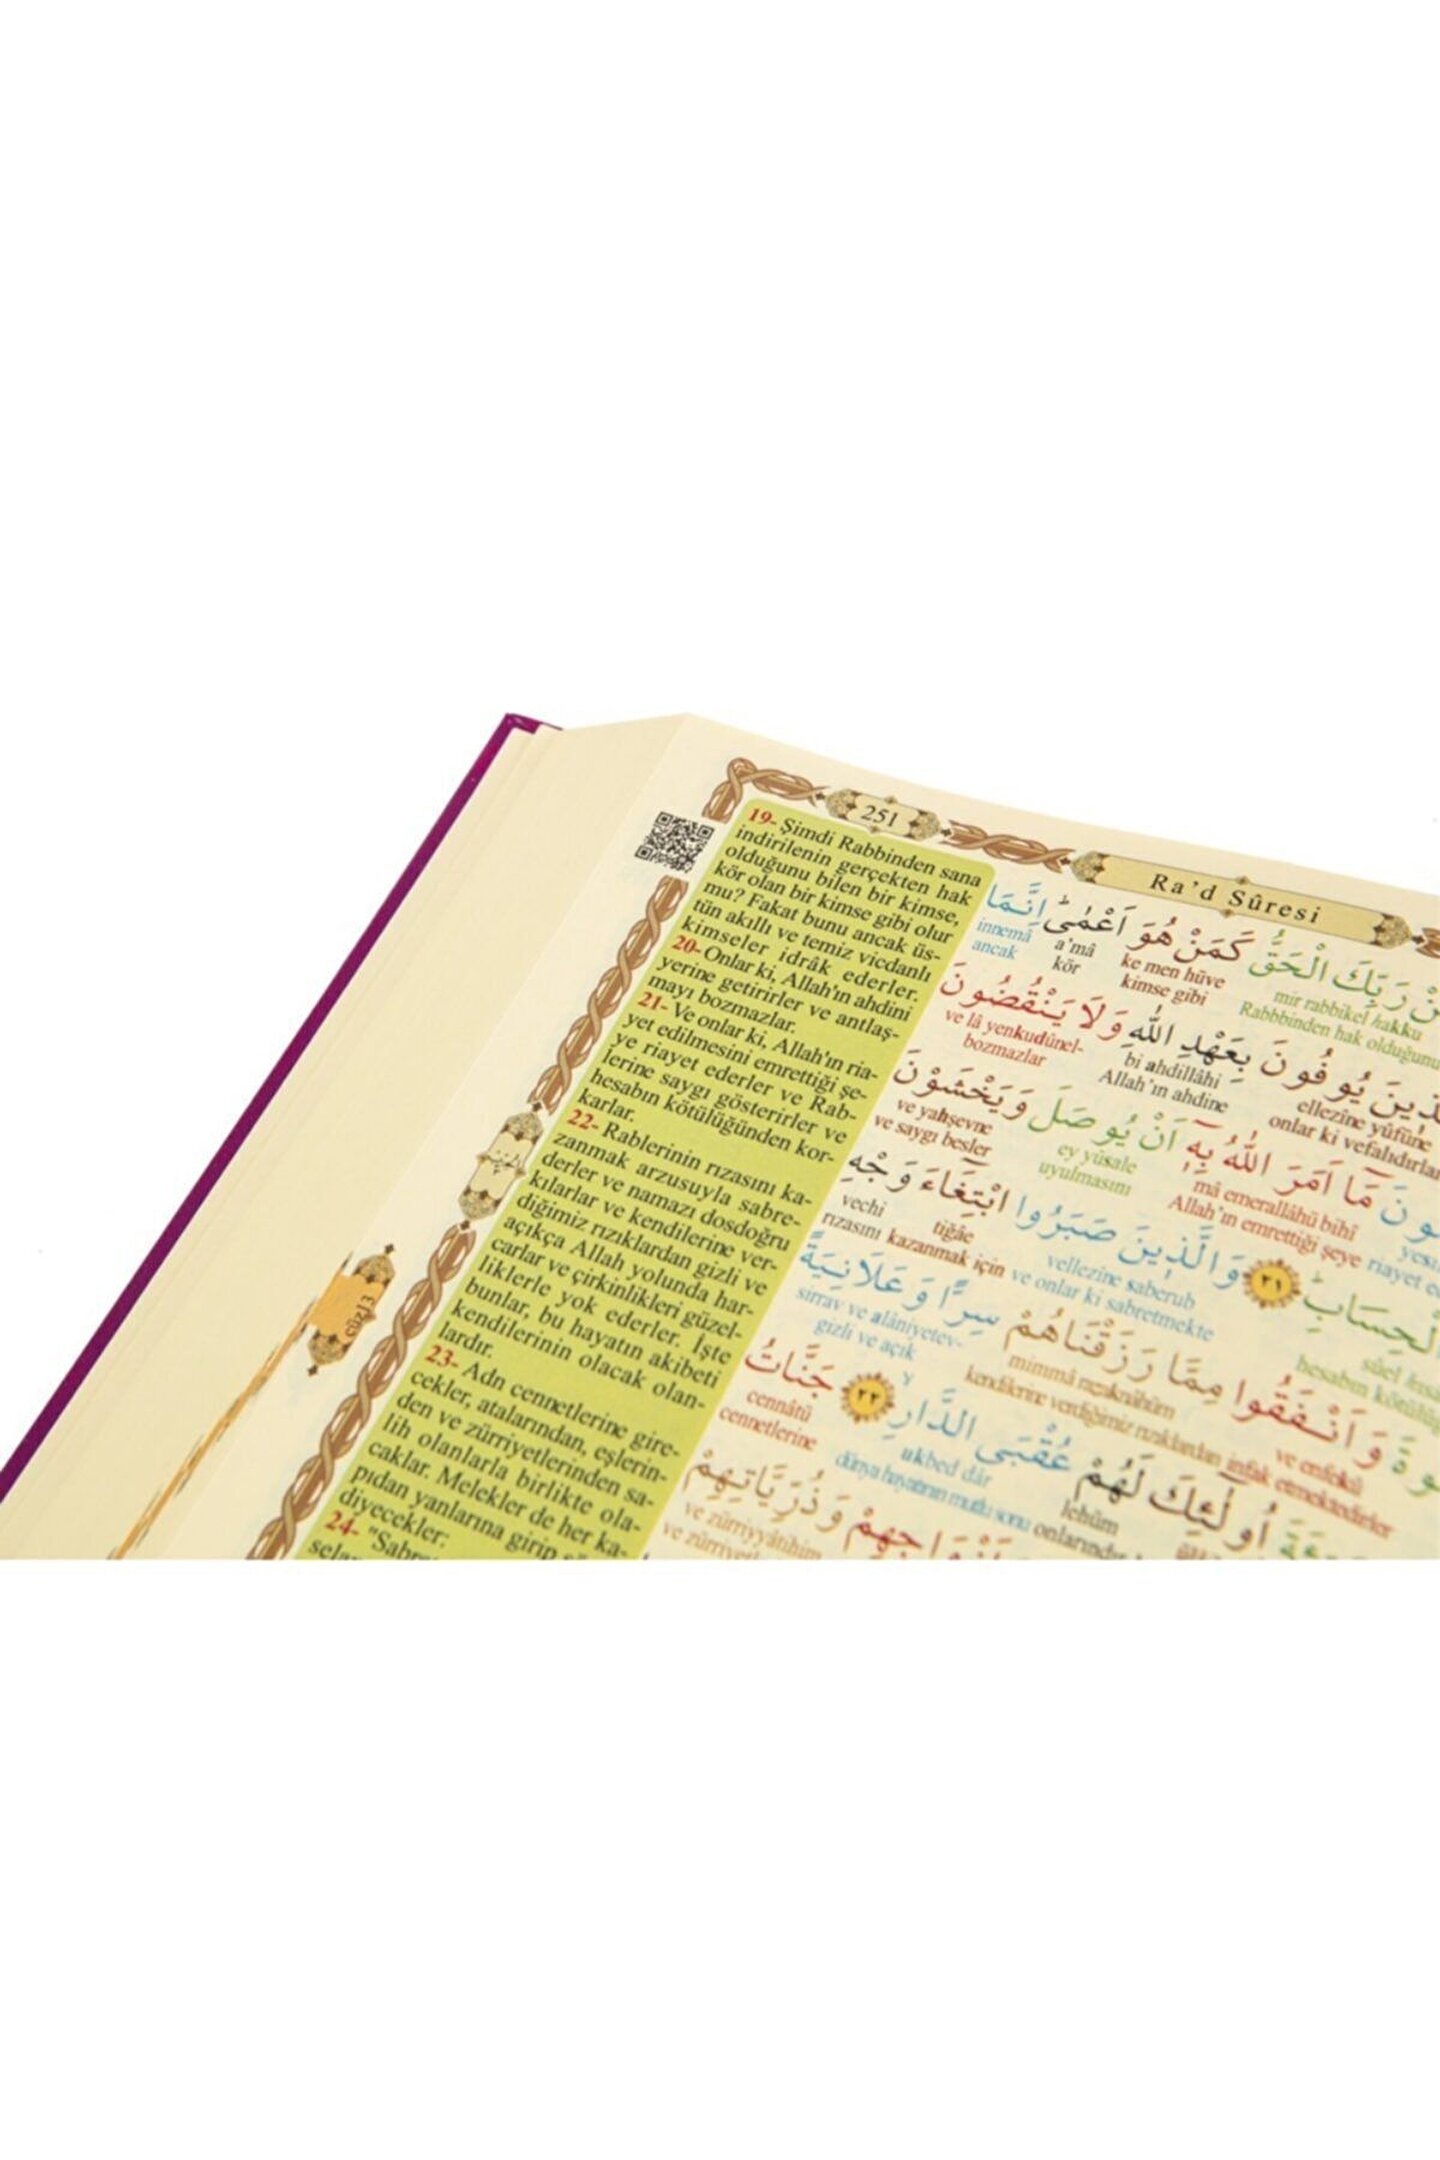 251
Ra'd Sûresi
19- Şimdi Rabbinden sana
indirilenin gerçekten hak
olduğunu bilen bir kimse,
kör olan bir kimse gibi olur
mu? Fakat bunu ancak üs-
tün akıllı ve temiz vicdanlı
kimseler idrâk ederler.
20- Onlar ki, Allah'ın ahdini
yerine getirirler ve antlaş-
mayı bozmazlar.
21- Ve onlar ki, Allah'ın ria-
yet edilmesini emrettiği şe-
ye riayet ederler ve Rab-
lerine saygı gösterirler ve
hesabın kötülüğünden kor-
karlar.
22- Rablerinin rızasını ka-
zanmak arzusuyla sabre-
derler ve namazı dosdoğru
kılarlar ve kendilerine ver-
diğimiz rızıklardan gizli ve
açıkça Allah yolunda har-
carlar ve çirkinlikleri güzel-
liklerle yok ederler. İşte
bunlar, bu hayatın akibeti
kendilerinin olacak olan-
lardır.
23- Adn cennetlerine gire-
cekler, atalarından, eşlerin-
den ve zürriyetlerinden sa-
lih olanlarla birlikte ola-
caklar. Melekler de her ka-
pıdan yanlarına girip
diyecekler:
24-
رَبِّكَ الْحَقُّ كَمَنْ هُوَ اَعْمٰىۜ اِنَّمَا
mir rabbikel hakku ke men hüve a'mâ innemâ
Rabbbinden hak olduğunu kimse gibi kör ancak
يُوفُونَ بِعَهْدِ اللّٰهِ وَلَا يَنْقُضُونَ
ellezîne yûfûne bi ahdillâhi ve lâ yenkudûnel-
onlar ki vefalıdırlar Allah'ın ahdine bozmazlar
مَٓا اَمَرَ اللّٰهُ بِهٖٓ اَنْ يُوصَلَ وَيَخْشَوْنَ
mâ emerallâhü bihî ey yûsale ve yahşevne
Allah'ın emrettiği şeye riayet uyulmasını ve saygı besler
الْحِسَابِۜ ٢١ وَالَّذٖينَ صَبَرُوا ابْتِغَٓاءَ وَجْهِ
vellezîne saberub tiğâe vechi
hesabın ve onlar ki sabretmekte rızasını kazanmak için
وَاَنْفَقُوا مِمَّا رَزَقْنَاهُمْ سِرًّا وَعَلَانِيَةً
ve enfekû mimmâ rezaknâhüm sirrav ve alâniyetev-
infak etmektedirler kendilerine verdiğimiz rızıklardan gizli ve açık
اُو۬لٰٓئِكَ لَهُمْ عُقْبَى الدَّارِۙ ٢٢ جَنَّاتُ
lehüm ukbed dâr cennâtü
dünya hayatının mutlu sonu cennetlerine
وَذُرِّيَّاتِهِمْ
ve zürriyyâtihim
cüz13